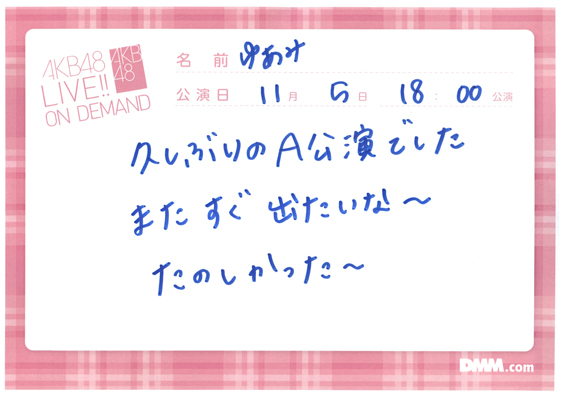 AKB48
LIVE!!
ON DEMAND
AKB
48
名前 ゆあみ
公演日 11月 5日 18:00 公演
久しぶりのA公演でした
また すぐ 出たいな〜
たのしかった〜
DMM.com